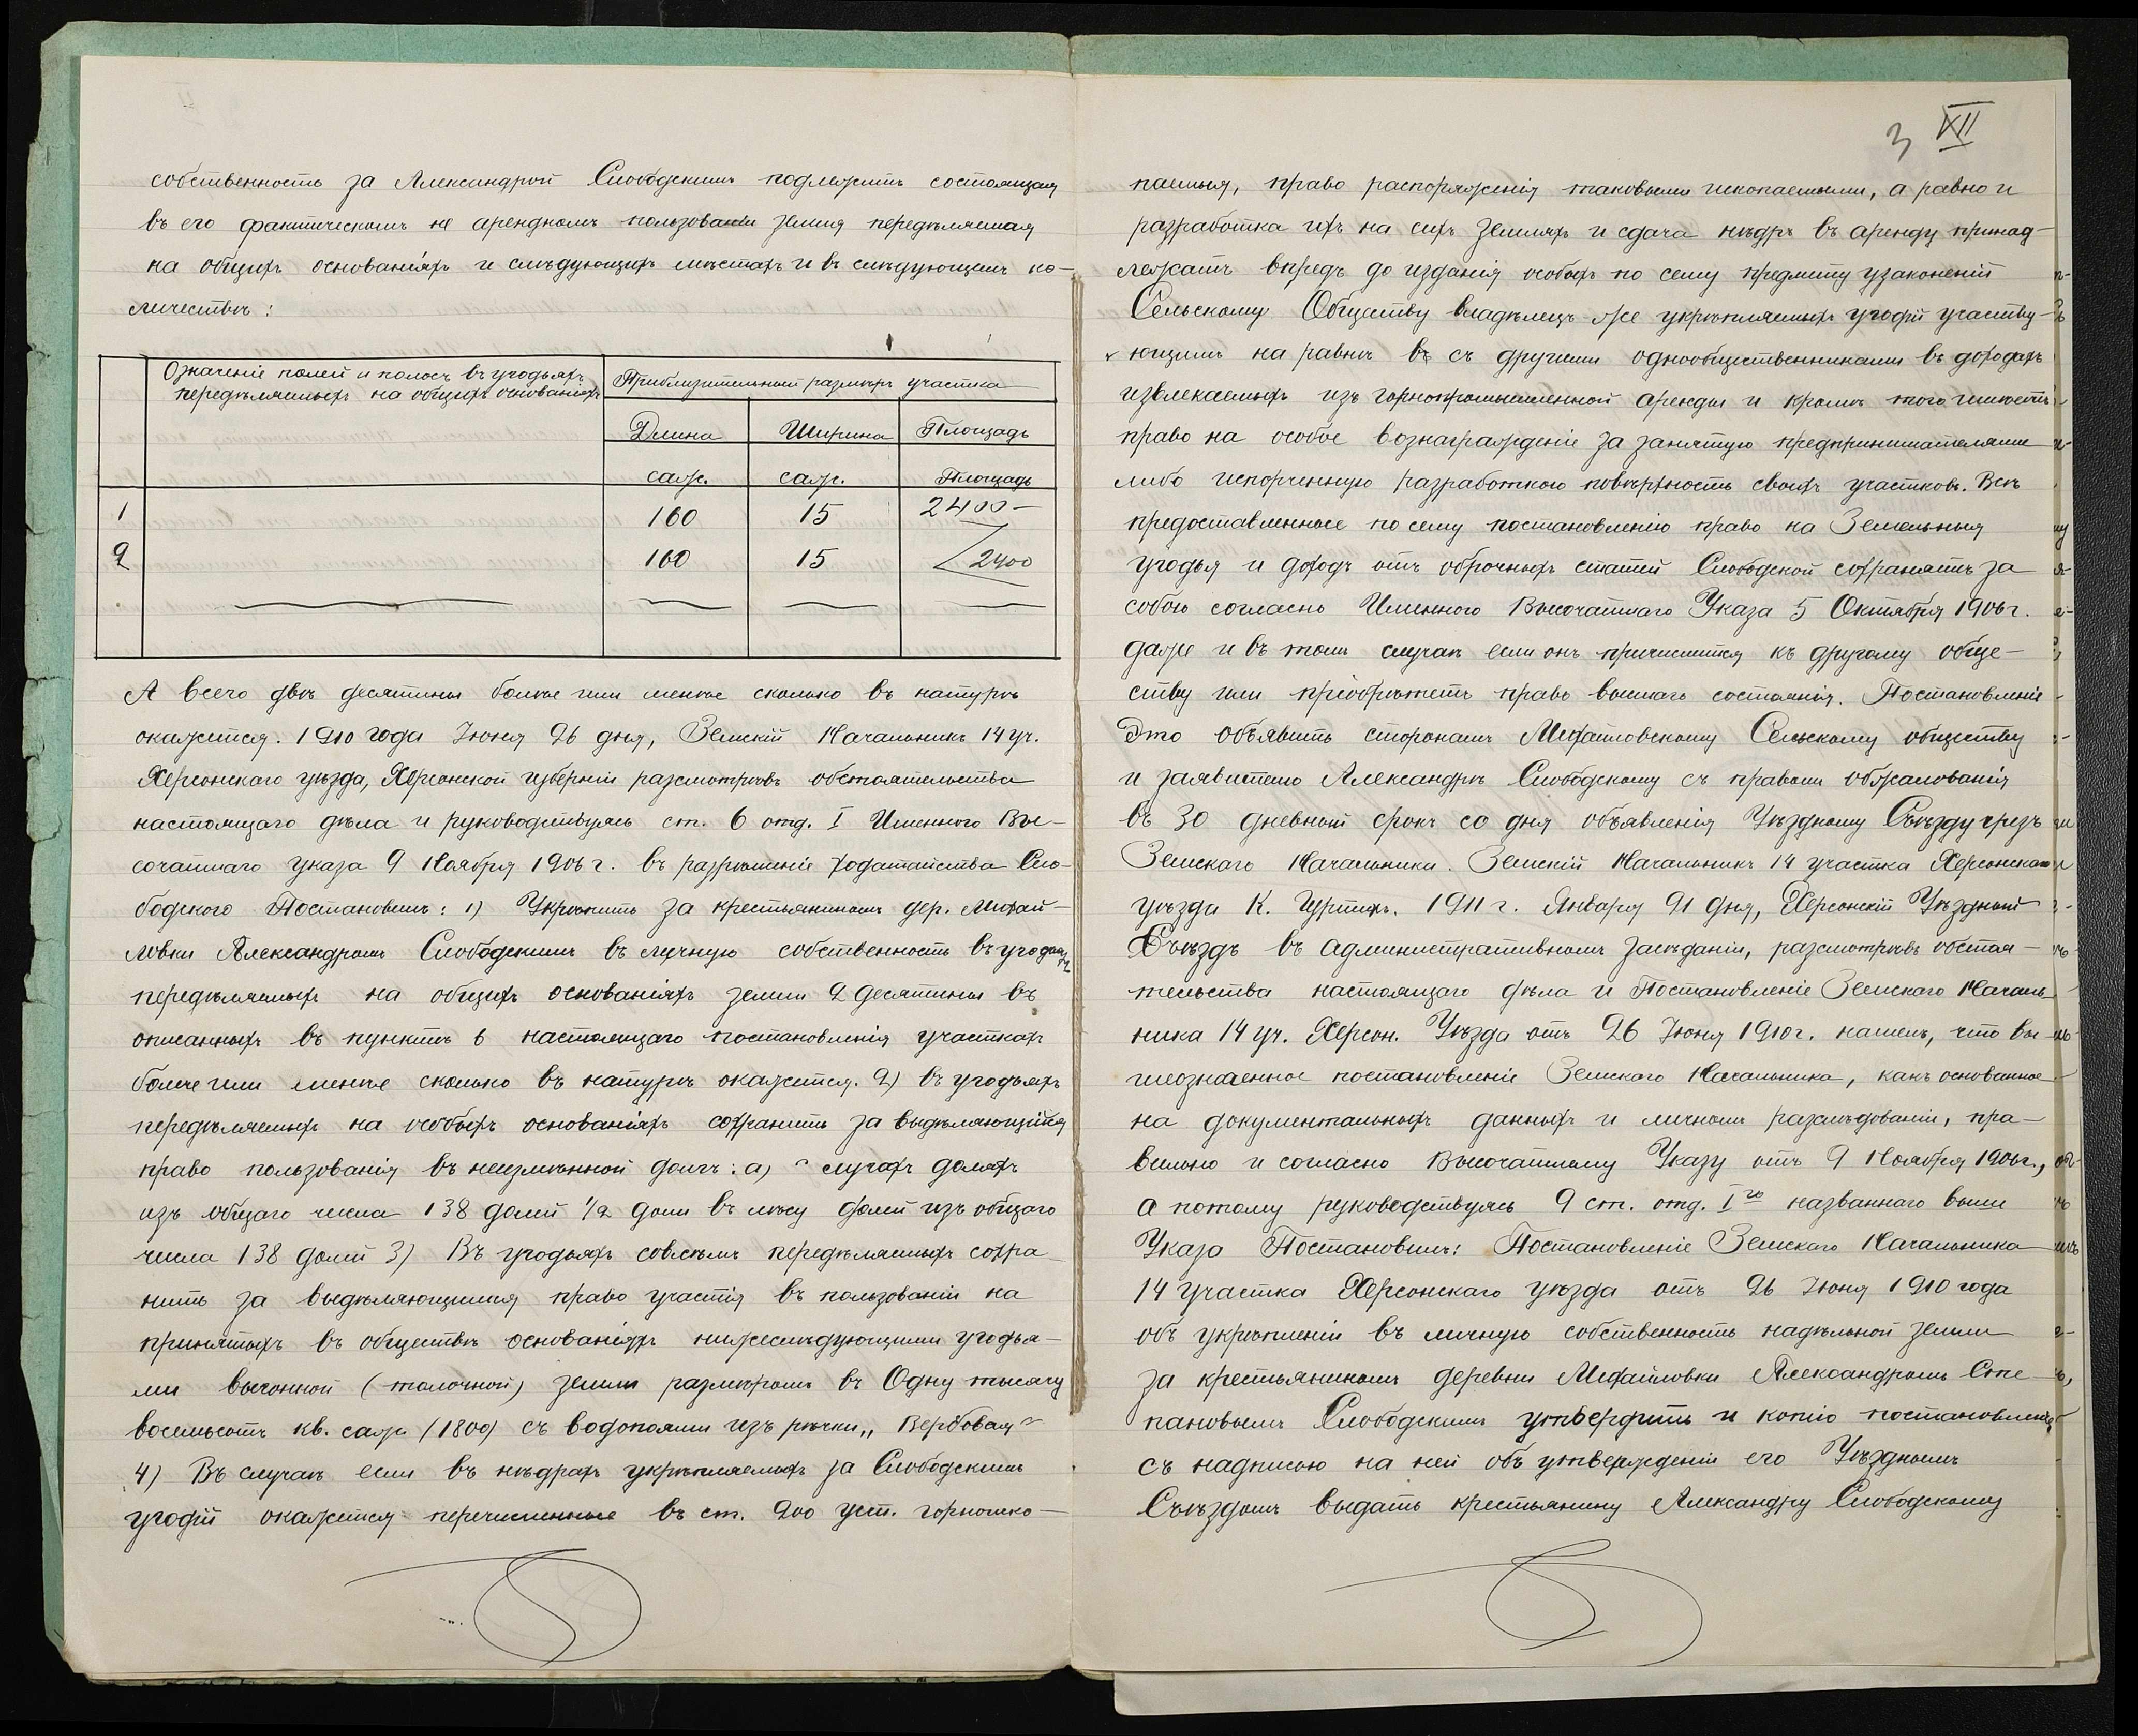 собственность за Александрой Слободскимъ подлежитъ состоящая
въ его фактическомъ не арендномъ пользовании земля передѣляемая
на общихъ основаніяхъ и слѣдующихъ мѣстахъ и въ слѣдующемъ ко-
личествѣ:
Означеніе полей и полосъ въ угодьяхъ
передѣляемыхъ на общихъ основаніяхъ
Приблизительный размѣръ участка
Длина Ширина Площадь
саж. саж. Площадь
1 160 15 2400
2 160 15 2400
А всего двѣ десятины болѣе или менѣе сколько въ натурѣ
окажется. 1910 года Іюня 26 дня, Земскій Начальникъ 14 уч.
Херсонскаго уѣзда, Херсонской губерніи разсмотрѣвъ обстоятельства
настоящаго дѣла и руководствуясь ст. 6 отд. I Именного Вы-
сочайшаго указа 9 Ноября 1906 г. въ разрѣшеніе ходатайства Сло-
бодского Постановилъ: 1) Укрѣпить за крестьяниномъ дер. Михай-
ловки Александромъ Слободскимъ въ личную собственность въ угодьяхъ
передѣляемыхъ на общихъ основаніяхъ земли 2 десятины въ
описанныхъ въ пунктѣ 6 настоящаго постановленія участкахъ
болѣе или менѣе сколько въ натурѣ окажется. 2) въ угодьяхъ
передѣляемыхъ на особыхъ основаніяхъ сохранить за выдѣляющійся
право пользованія въ неизмѣнной долѣ: а) лугахъ доляхъ
изъ общаго числа 138 долей 1/2 доли въ лѣсу долей изъ общаго
числа 138 долей 3) Въ угодьяхъ совсѣмъ передѣляемыхъ сохра-
нить за выдѣляющимся право участія въ пользованіи на
принятыхъ въ обществѣ основаніяхъ нижеслѣдующими угодья-
ми выгонной (толочной) земли размѣромъ въ Одну тысячу
восемьсотъ кв. саж (1800) съ водопоями изъ рѣчки „Вербовая"
4) Въ случаѣ если въ нѣдрахъ укрѣпляемыхъ за Слободскимъ
угодій окажется перечисленные въ ст. 200 уст. горномко-
3 XII
паемыя, право распоряженія таковыми ископаемыми, а равно и
разработка ихъ на сихъ земляхъ и сдача нѣдръ въ аренду принад-
лежатъ впредь до изданія особыхъ по сему предмету узаконеній
Сельскому Обществу владѣлецъ же укрѣпляемыхъ угодій участву-
ющимъ на равнѣ въ съ другими однообщественниками въ доходахъ
извлекаемыхъ изъ горнопромышленной аренды и кромѣ того имѣетъ
право на особое вознагражденіе за занятую предпринимателями
либо испорченную разработкою поверхность своихъ участковъ. Всѣ
предоставленные по сему постановленію право на Земельныя
угодья и доходъ отъ оброчныхъ статей Слободской сохранятъ за
собою согласно Именного Высочайшаго Указа 5 Октября 1906 г.
даже и въ томъ случаѣ если онъ причислится къ другому обще-
ству или пріобрѣтетъ право высшаго состоянія. Постановленіе
Это объявить сторонамъ Михайловскому Сельскому обществу
и заявителю Александрѣ Слободскому съ правомъ обжалованія
въ 30 дневный срокъ со дня объявленія Уѣздному Съѣзду чрезъ
Земскаго Начальника. Земскій Начальникъ 14 участка Херсонскаго
уѣзда К. 1911 г. Января 21 дня, Херсонскій Уѣздный
Съѣздъ въ административномъ засѣданіи, разсмотрѣвъ обстоя-
тельства настоящаго дѣла и Постановленіе Земскаго Началь
ника 14 уч. Херсон. Уѣзда отъ 26 Іюня 1910 г. нашелъ, что вы-
шеозначенное постановленіе Земскаго Начальника, какъ основанное
на документальныхъ данныхъ и личномъ разслѣдованіи, пра-
вильно и согласно Высочайшему Указу отъ 9 Ноября 1906 г.,
а потому руководствуясь 9 ст. отд. I го названнаго выше
Указа Постановилъ: Постановленіе Земскаго Начальника
14 участка Херсонскаго уѣзда отъ 26 Іюня 1910 года
объ укрѣпленіи въ личную собственность надѣльной земли
за крестьяниномъ деревни Михайловки Александромъ Сте-
пановымъ Слободскимъ утвердить и копію постановленія
съ надписью на ней объ утвержденіи его Уѣзднымъ
Съѣздомъ выдать крестьянину Александру Слободскому